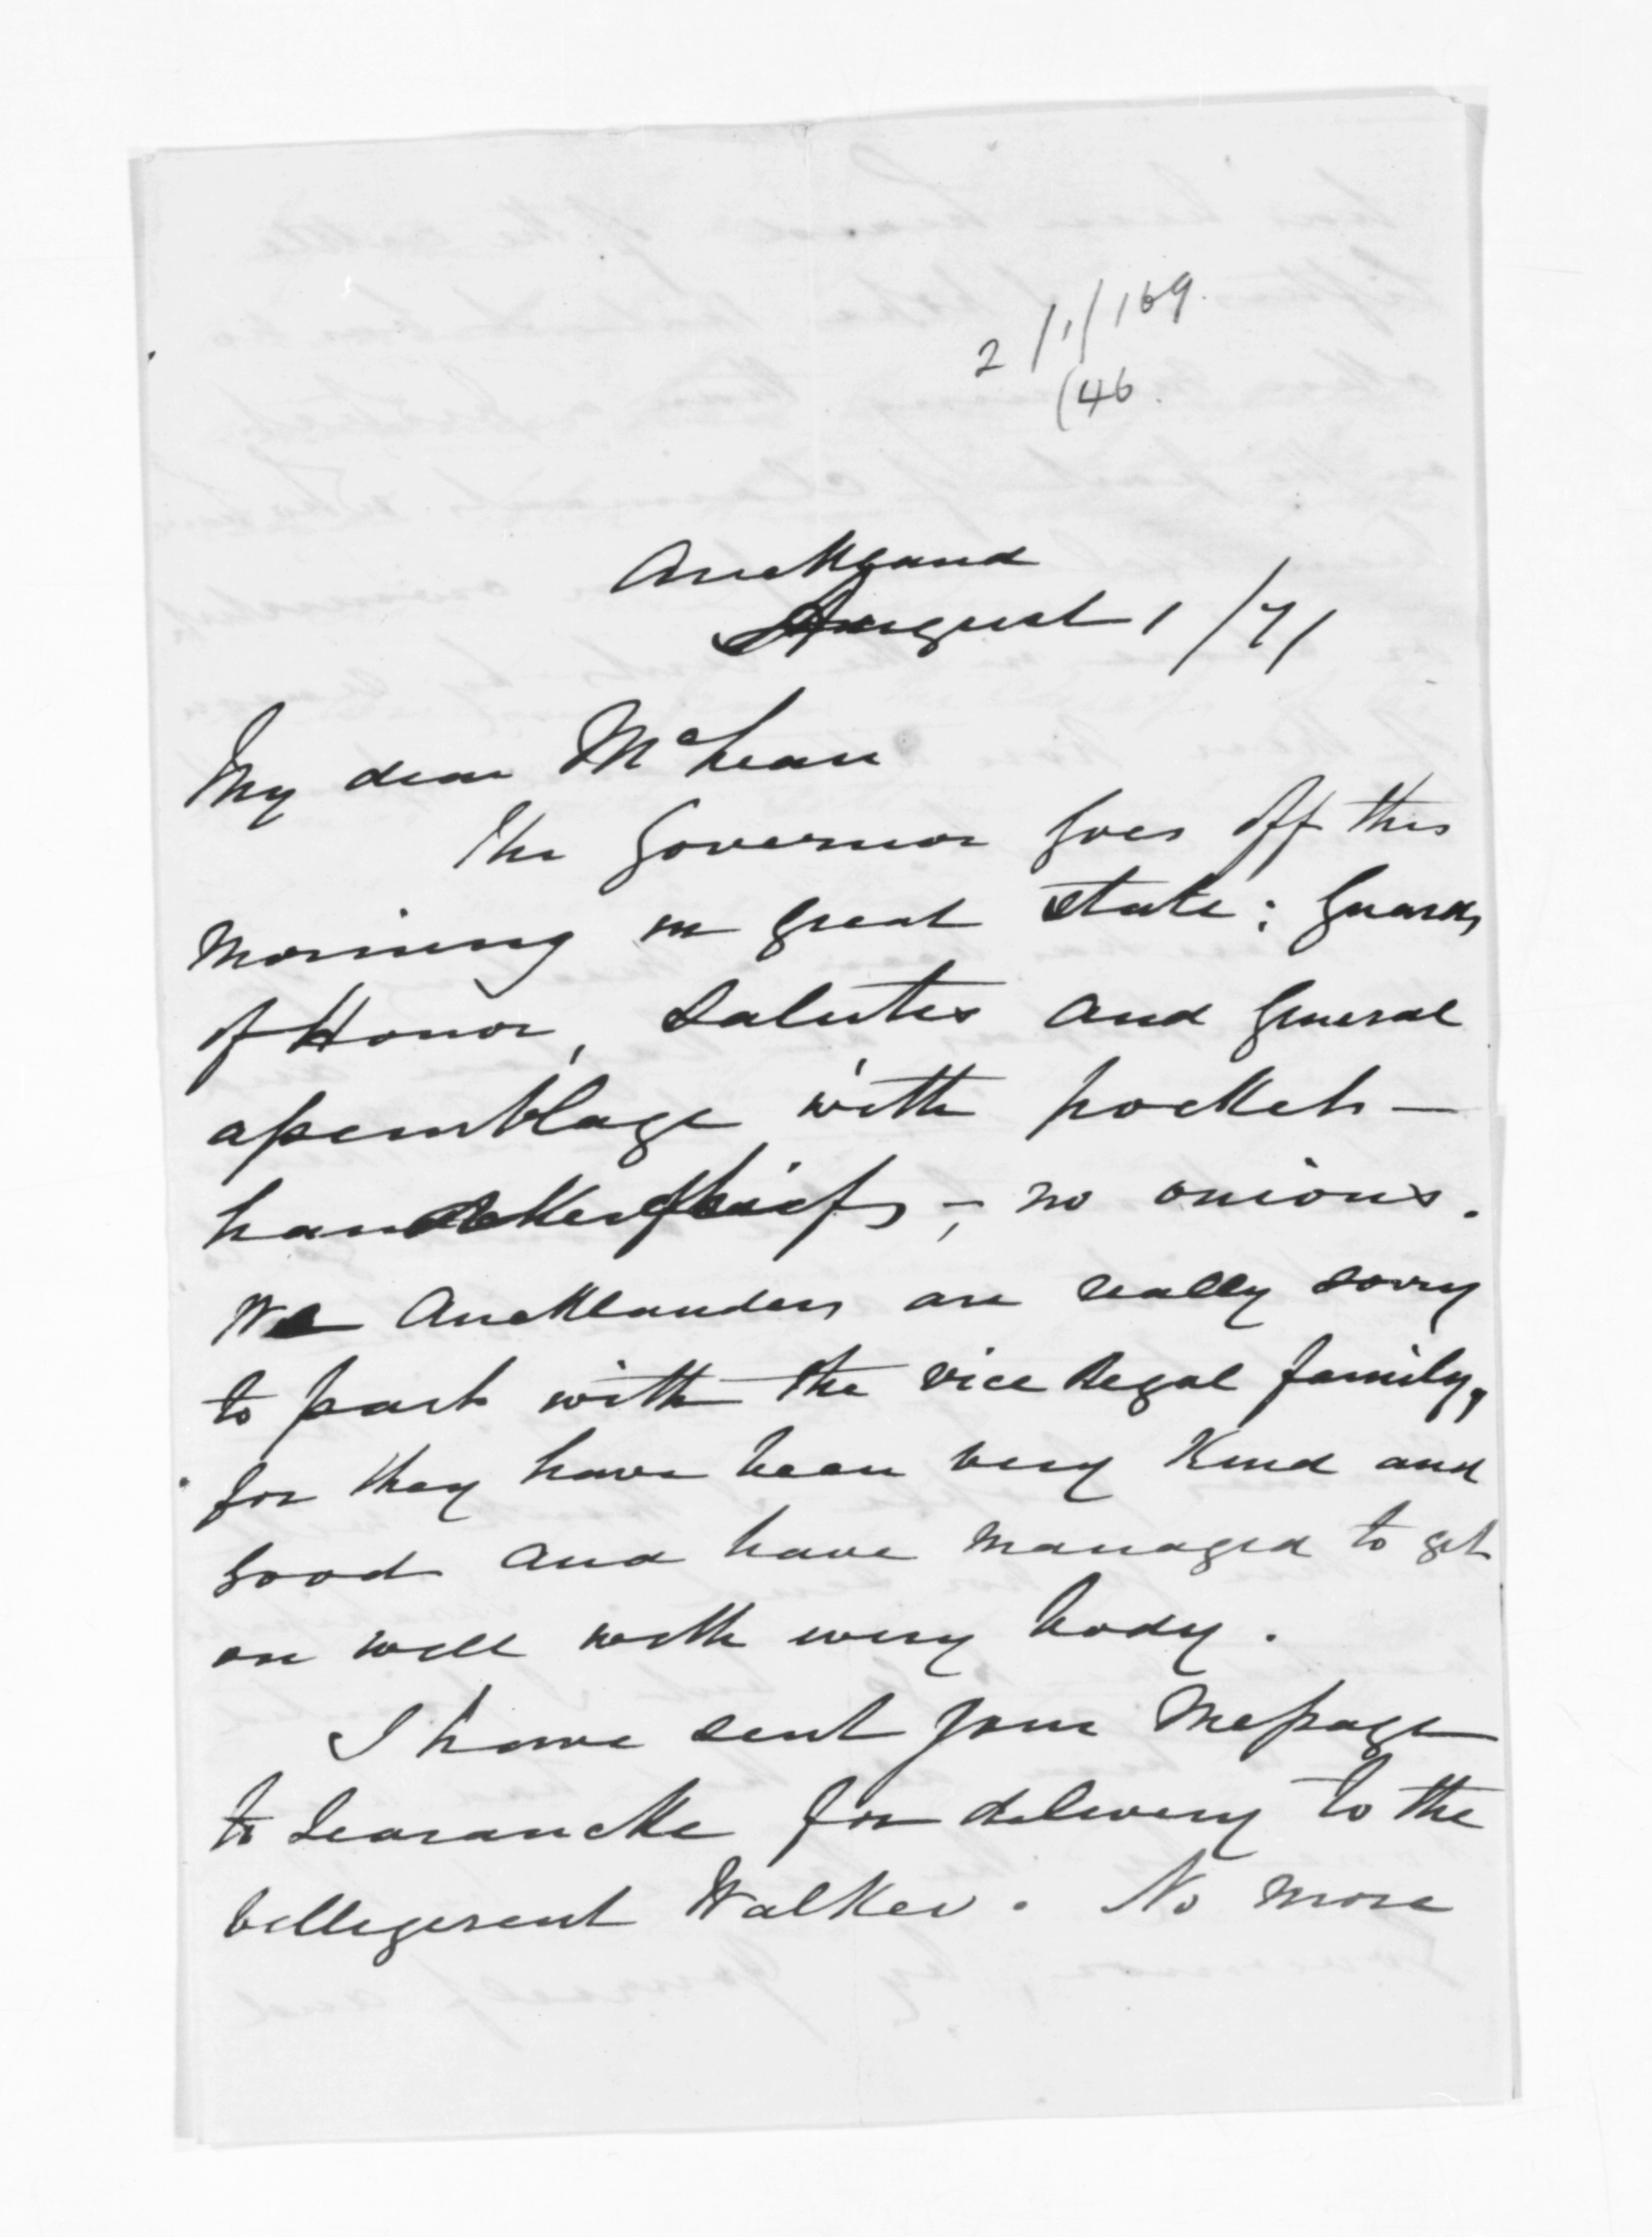 2/1/169.
(46.
Auckland
August 1/71
My dear McLean
The Governor goes off this
morning in great state: Guards
of Honor, Salutes and General
assemblage with pocket-
handkerchiefs -; no onions.
We Aucklanders are really sorry
to part with the vice Regal family,
for they have been very kind and
good and have managed to get
on well with every body.
I have sent your message
to Searancke for delivery to the
belligerent Walker. No more